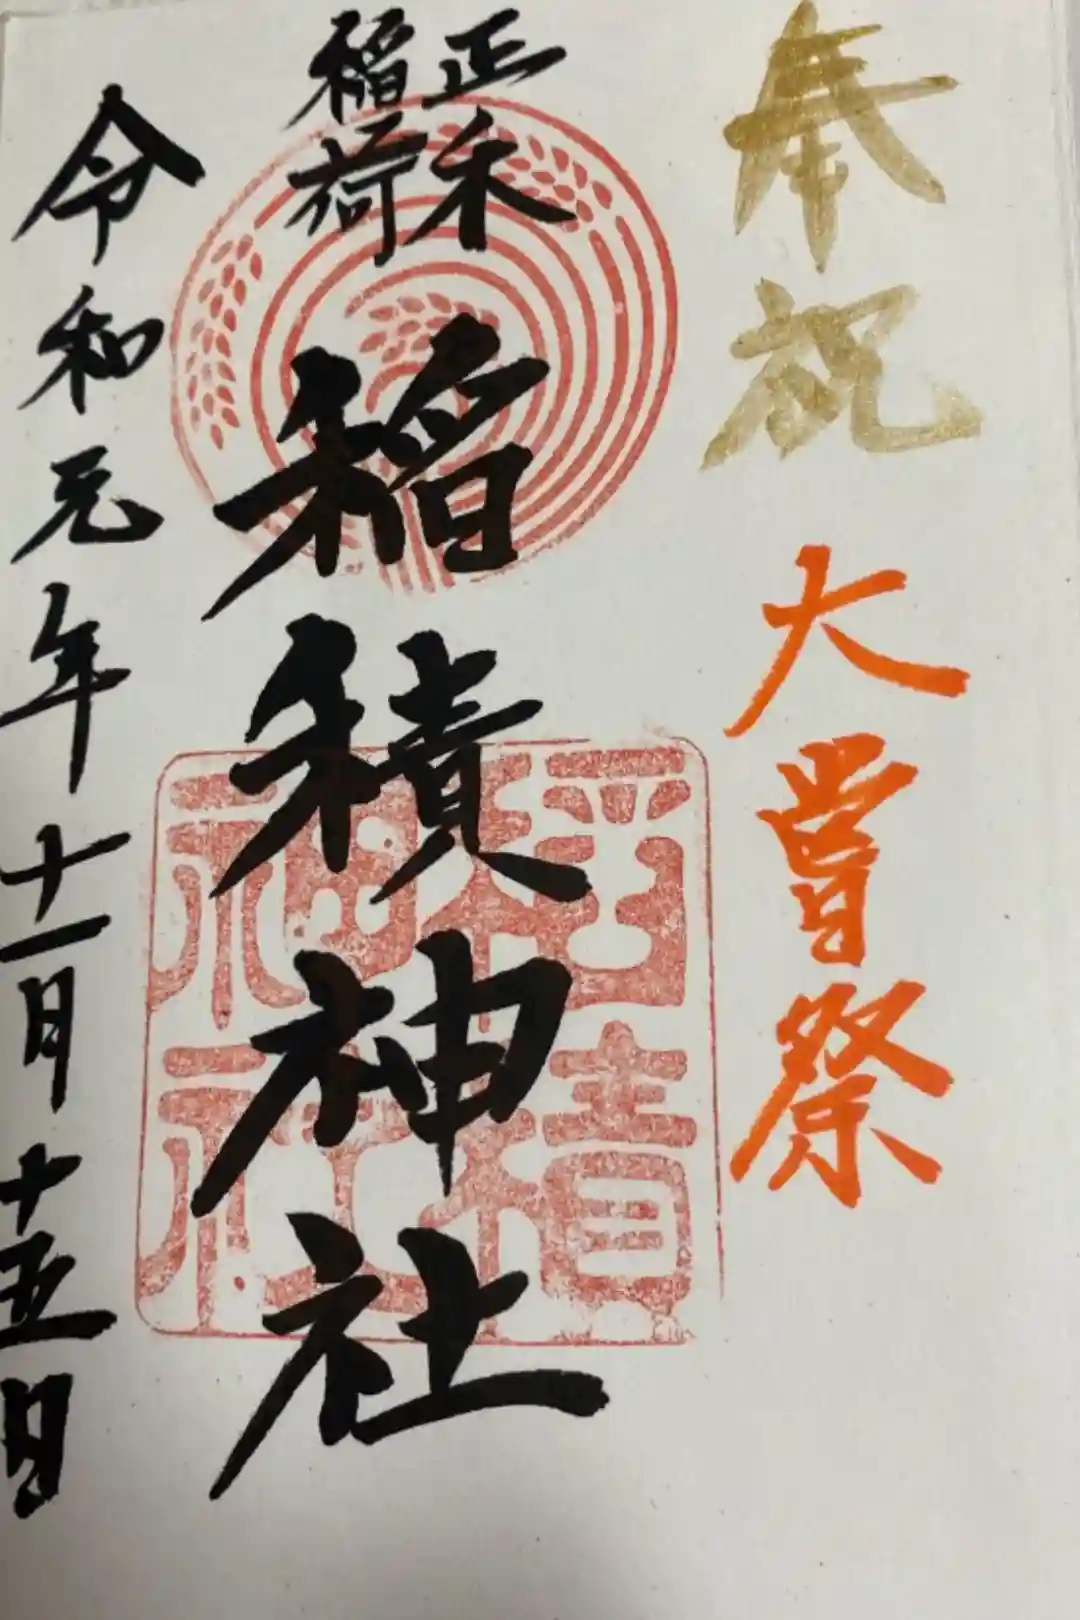 奉祝
大嘗祭
正木
稲荷
稲積神社
稲積
神社
令和元年十一月十五日